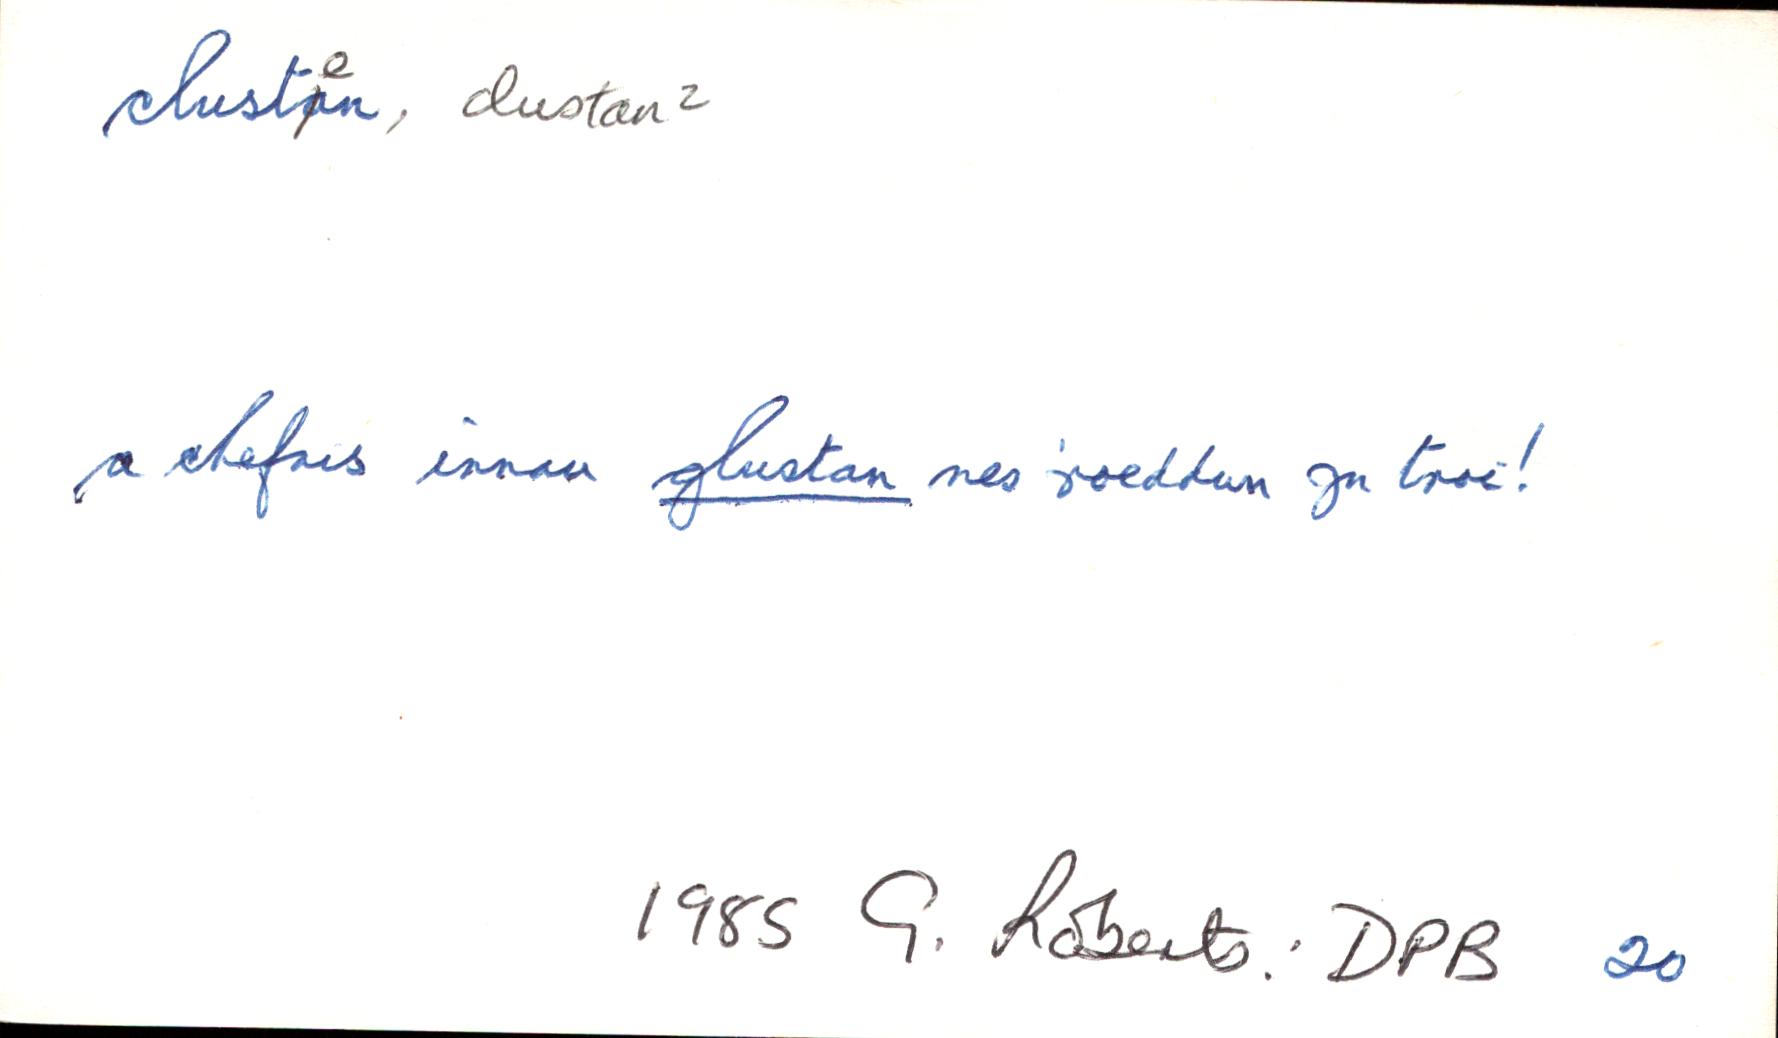 clusten, clustan²
a chefais innau glustan nes 'roeddwn yn troi!
1985 G. Roberts: DPB 20